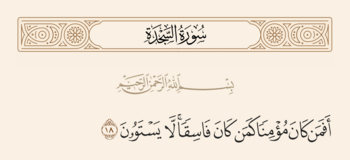 سُورَةُ السَّجْدَةِ
بِسْمِ اللَّهِ الرَّحْمَٰنِ الرَّحِيمِ
أَفَمَن كَانَ مُؤْمِنًا كَمَن كَانَ فَاسِقًا ۚ لَّا يَسْتَوُونَ ١٨